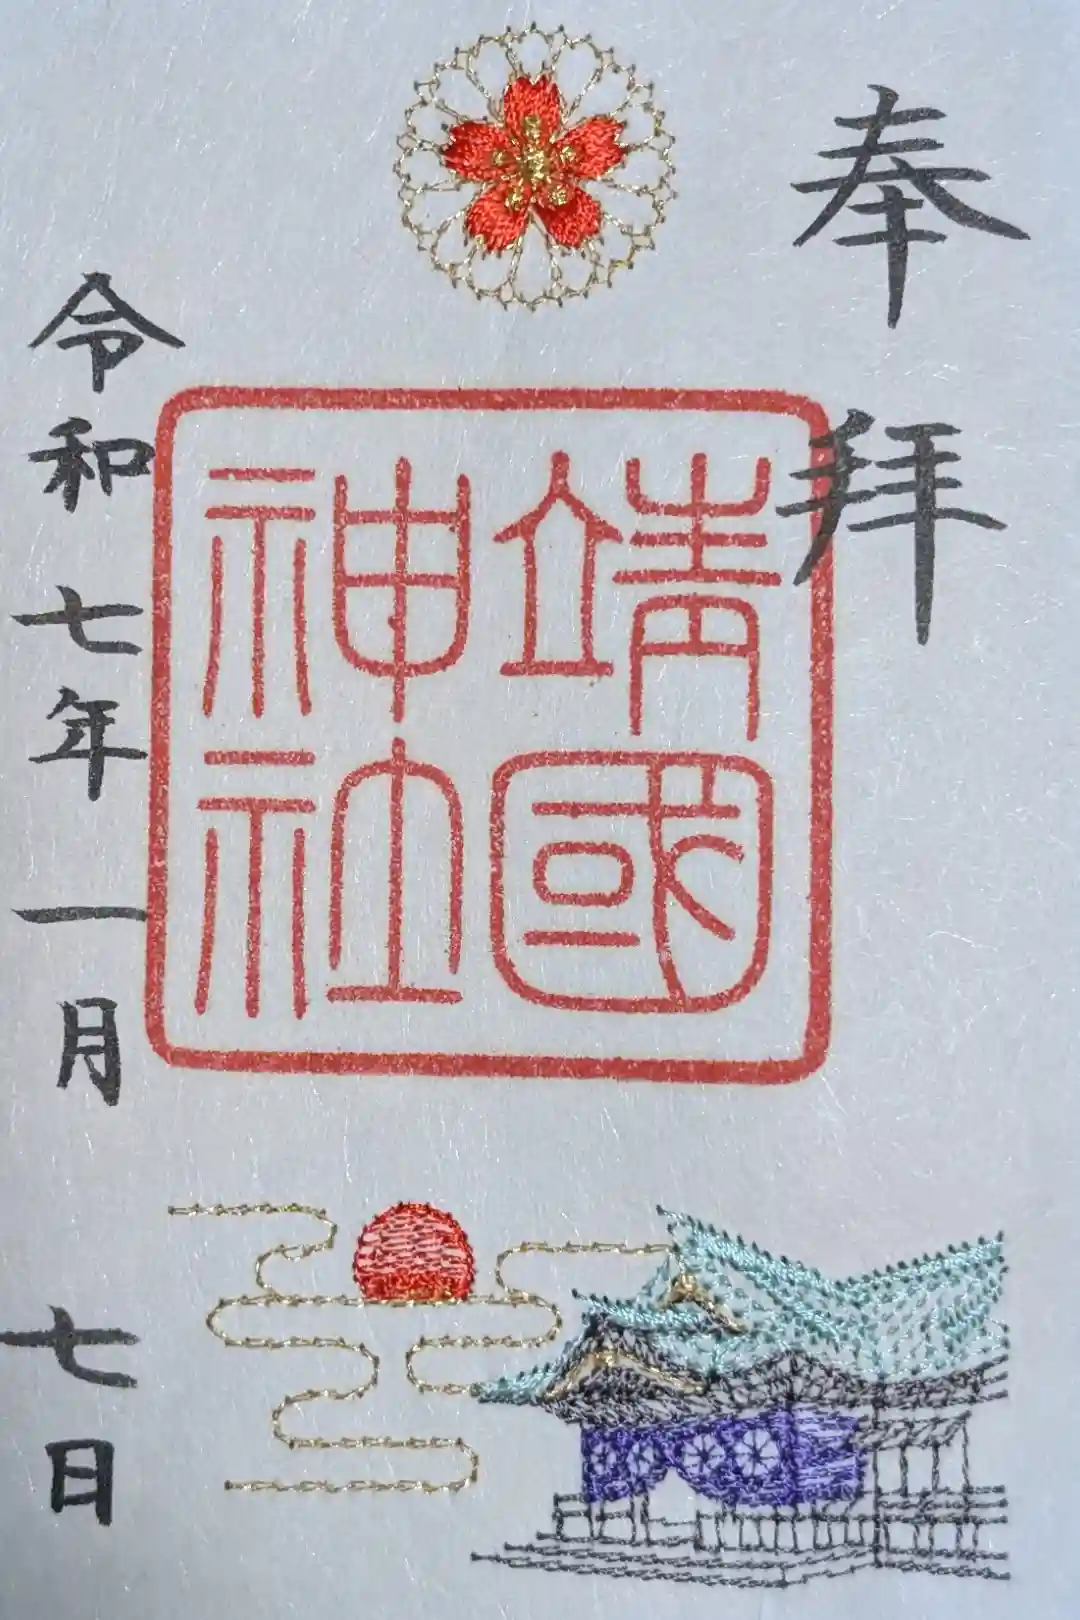 奉拝
靖國
神社
令和七年一月七日